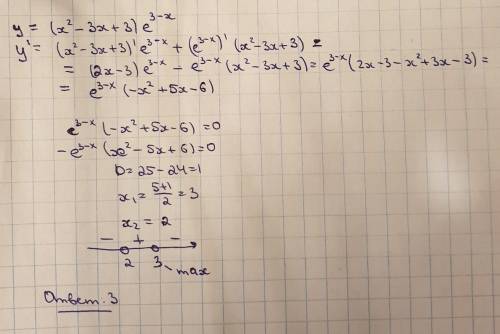 y = (x² - 3x + 3) e^{3-x}
y' = (x² - 3x + 3)' e^{3-x} + (e^{3-x})' (x² - 3x + 3) =
= (2x - 3) e^{3-x} - e^{3-x} (x² - 3x + 3) = e^{3-x} (2x - 3 - x² + 3x - 3) =
= e^{3-x} (-x² + 5x - 6)
e^{3-x} (-x² + 5x - 6) = 0
-e^{3-x} (x² - 5x + 6) = 0
D = 25 - 24 = 1
x₁ = \frac{5+1}{2} = 3
x₂ = 2
- + -
2 3 - max
Ответ: 3